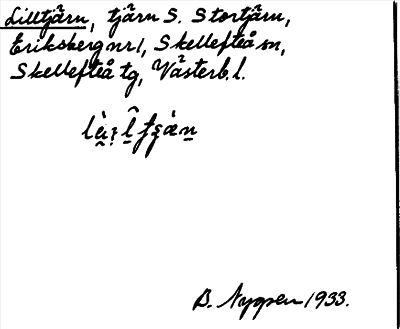 Lilltjärn, tjärn S. Stortjärn,
Eriksberg nr 1, Skellefteå sn,
Skellefteå tg, Västerb. l.
B. Nygren 1933.